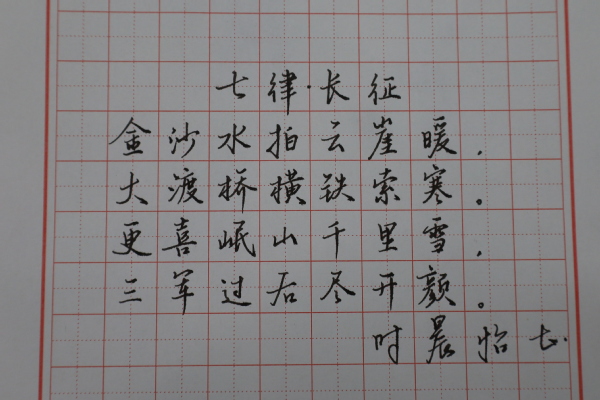 七律·长征
金沙水拍云崖暖，
大渡桥横铁索寒。
更喜岷山千里雪，
三军过后尽开颜。
时晨怡书